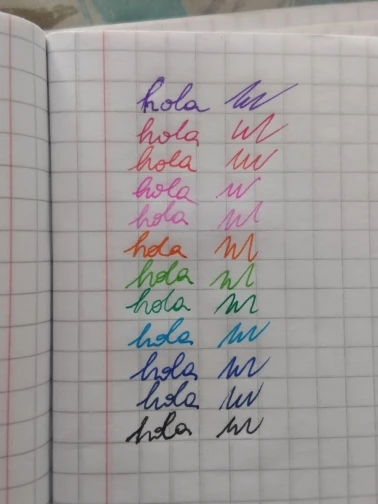 hola
hola
hola
hola
hola
hola
hola
hola
hola
hola
hola
hola